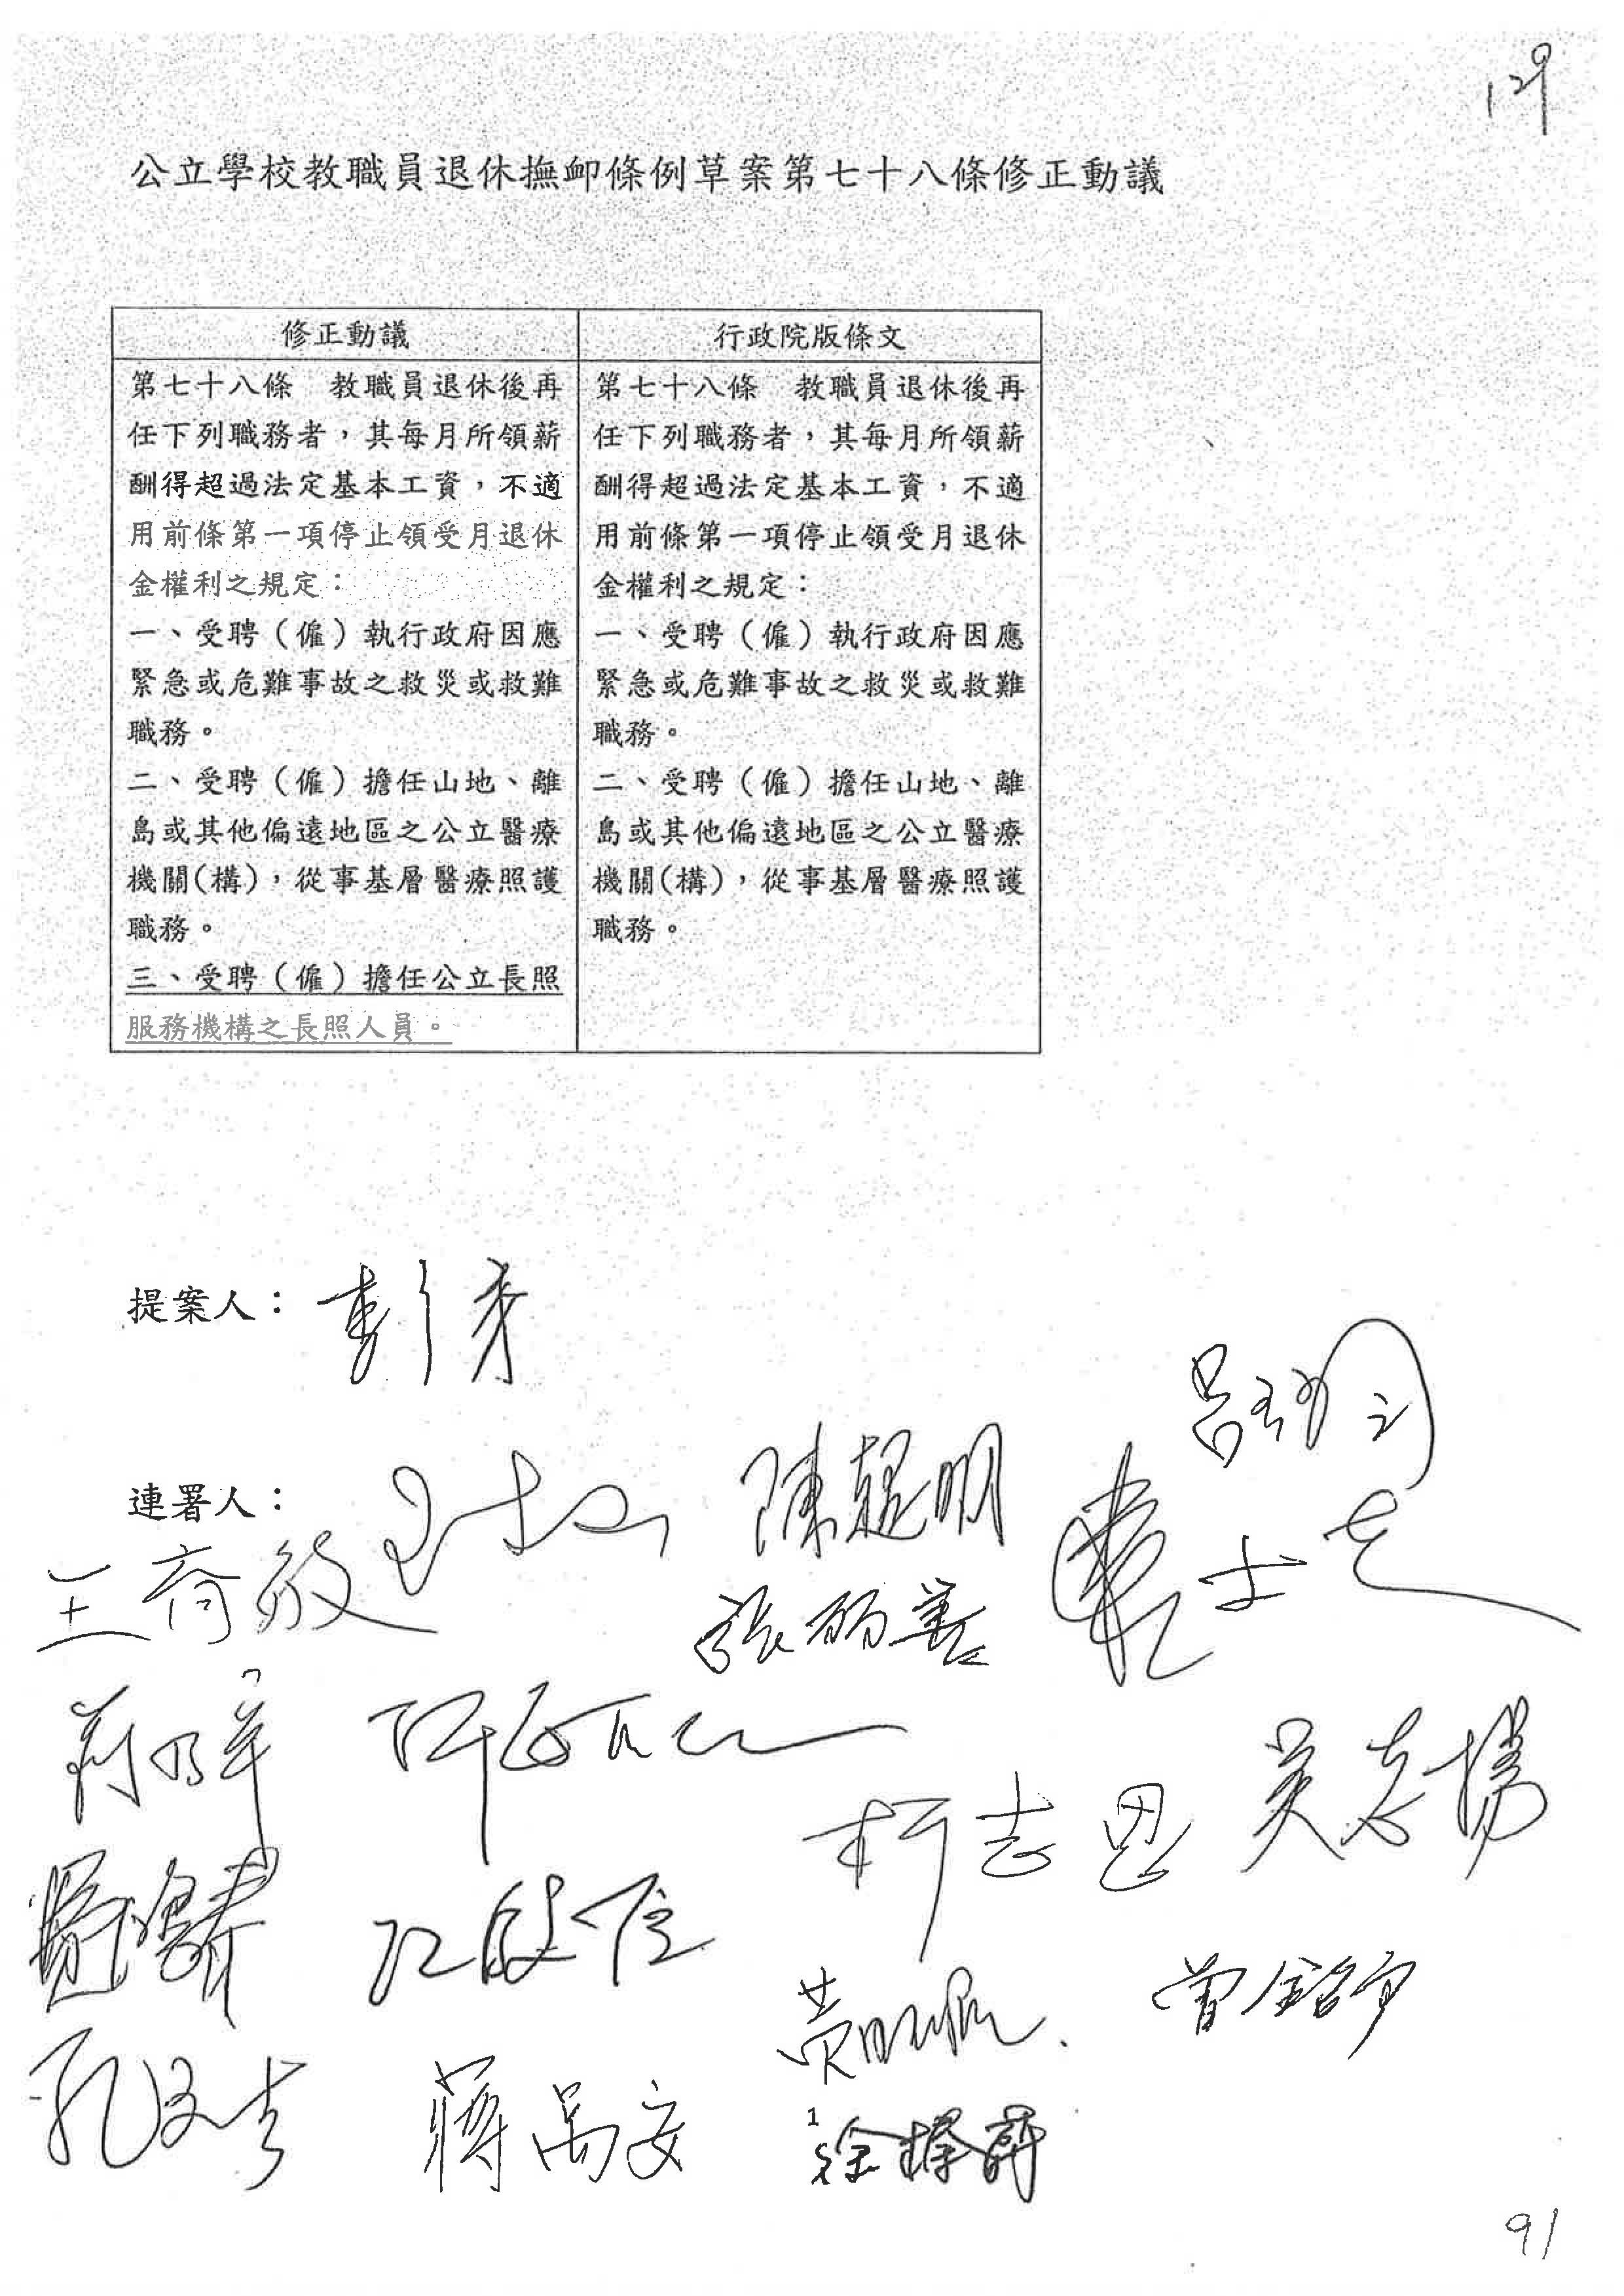 129
公立學校教職員退休撫卹條例草案第七十八條修正動議
修正動議
第七十八條　教職員退休後再
任下列職務者，其每月所領薪
酬得超過法定基本工資，不適
用前條第一項停止領受月退休
金權利之規定：
一、受聘（僱）執行政府因應
緊急或危難事故之救災或救難
職務。
二、受聘（僱）擔任山地、離
島或其他偏遠地區之公立醫療
機關(構)，從事基層醫療照護
職務。
三、受聘（僱）擔任公立長照
服務機構之長照人員。
行政院版條文
第七十八條　教職員退休後再
任下列職務者，其每月所領薪
酬得超過法定基本工資，不適
用前條第一項停止領受月退休
金權利之規定：
一、受聘（僱）執行政府因應
緊急或危難事故之救災或救難
職務。
二、受聘（僱）擔任山地、離
島或其他偏遠地區之公立醫療
機關(構)，從事基層醫療照護
職務。
提案人：
連署人：
陳超明
張麗善
柯志恩
吳志揚
江啟臣
黃昭順
曾銘宗
孔文吉
蔣萬安
徐榛蔚
1
91